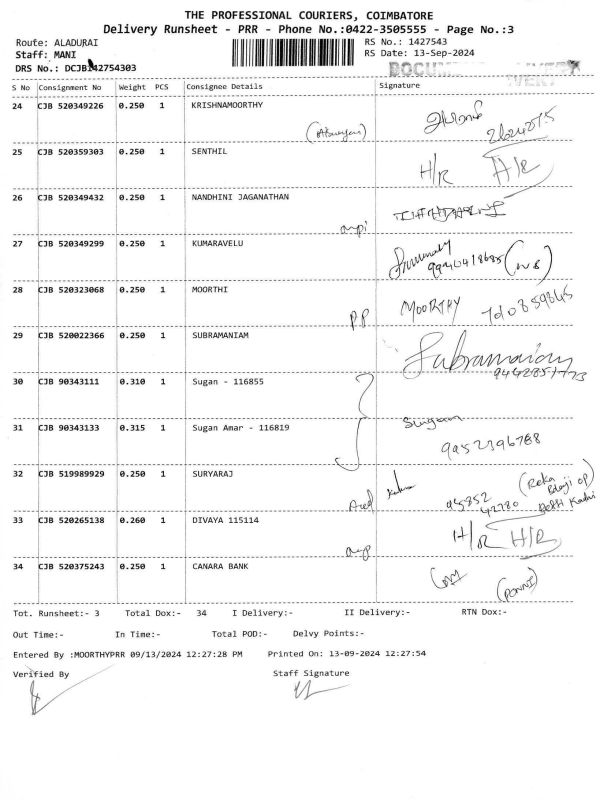 THE PROFESSIONAL COURIERS, COIMBATORE
Delivery Runsheet - PRR - Phone No.:0422-3505555 - Page No.:3
Route: ALADURAI RS No.: 1427543
Staff: MANI RS Date: 13-Sep-2024
DRS No.: DCJB142754303
S No Consignment No Weight PCS Consignee Details Signature
24 CJB 520349226 0.250 1 KRISHNAMOORTHY
25 CJB 520359303 0.250 1 SENTHIL H/R H/R
26 CJB 520349432 0.250 1 NANDHINI JAGANATHAN
27 CJB 520349299 0.250 1 KUMARAVELU
28 CJB 520323068 0.250 1 MOORTHI PP MOORTHY
29 CJB 520022366 0.250 1 SUBRAMANIAM
30 CJB 90343111 0.310 1 Sugan - 116855
31 CJB 90343133 0.315 1 Sugan Amar - 116819 Sugan
9952396788
32 CJB 519989929 0.250 1 SURYARAJ
33 CJB 520265138 0.260 1 DIVAYA 115114 H/R H/R
34 CJB 520375243 0.250 1 CANARA BANK
Tot. Runsheet:- 3 Total Dox:- 34 I Delivery:- II Delivery:- RTN Dox:-
Out Time:- In Time:- Total POD:- Delvy Points:-
Entered By :MOORTHYPRR 09/13/2024 12:27:28 PM Printed On: 13-09-2024 12:27:54
Verified By Staff Signature